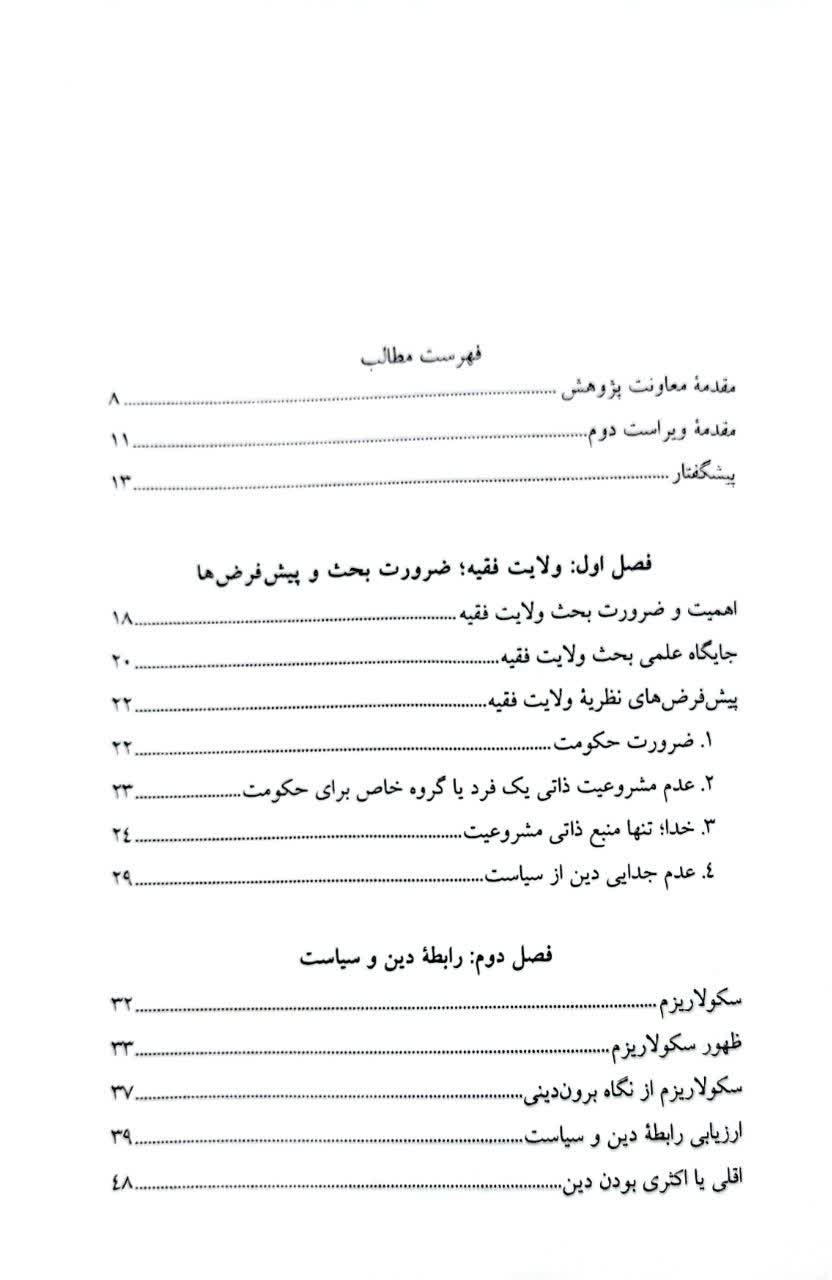 فهرست مطالب
مقدمهٔ معاونت پژوهش ........ ۸
مقدمهٔ ویراست دوم ........ ۱۱
پیشگفتار ........ ۱۳
فصل اول: ولایت فقیه؛ ضرورت بحث و پیش‌فرض‌ها
اهمیت و ضرورت بحث ولایت فقیه ........ ۱۸
جایگاه علمی بحث ولایت فقیه ........ ۲۰
پیش‌فرض‌های نظریهٔ ولایت فقیه ........ ۲۲
۱. ضرورت حکومت ........ ۲۲
۲. عدم مشروعیت ذاتی یک فرد یا گروه خاص برای حکومت ........ ۲۳
۳. خدا؛ تنها منبع ذاتی مشروعیت ........ ۲٤
٤. عدم جدایی دین از سیاست ........ ۲۹
فصل دوم: رابطهٔ دین و سیاست
سکولاریزم ........ ۳۲
ظهور سکولاریزم ........ ۳۳
سکولاریزم از نگاه برون‌دینی ........ ۳۷
ارزیابی رابطهٔ دین و سیاست ........ ۳۹
اقلی یا اکثری بودن دین ........ ٤۸